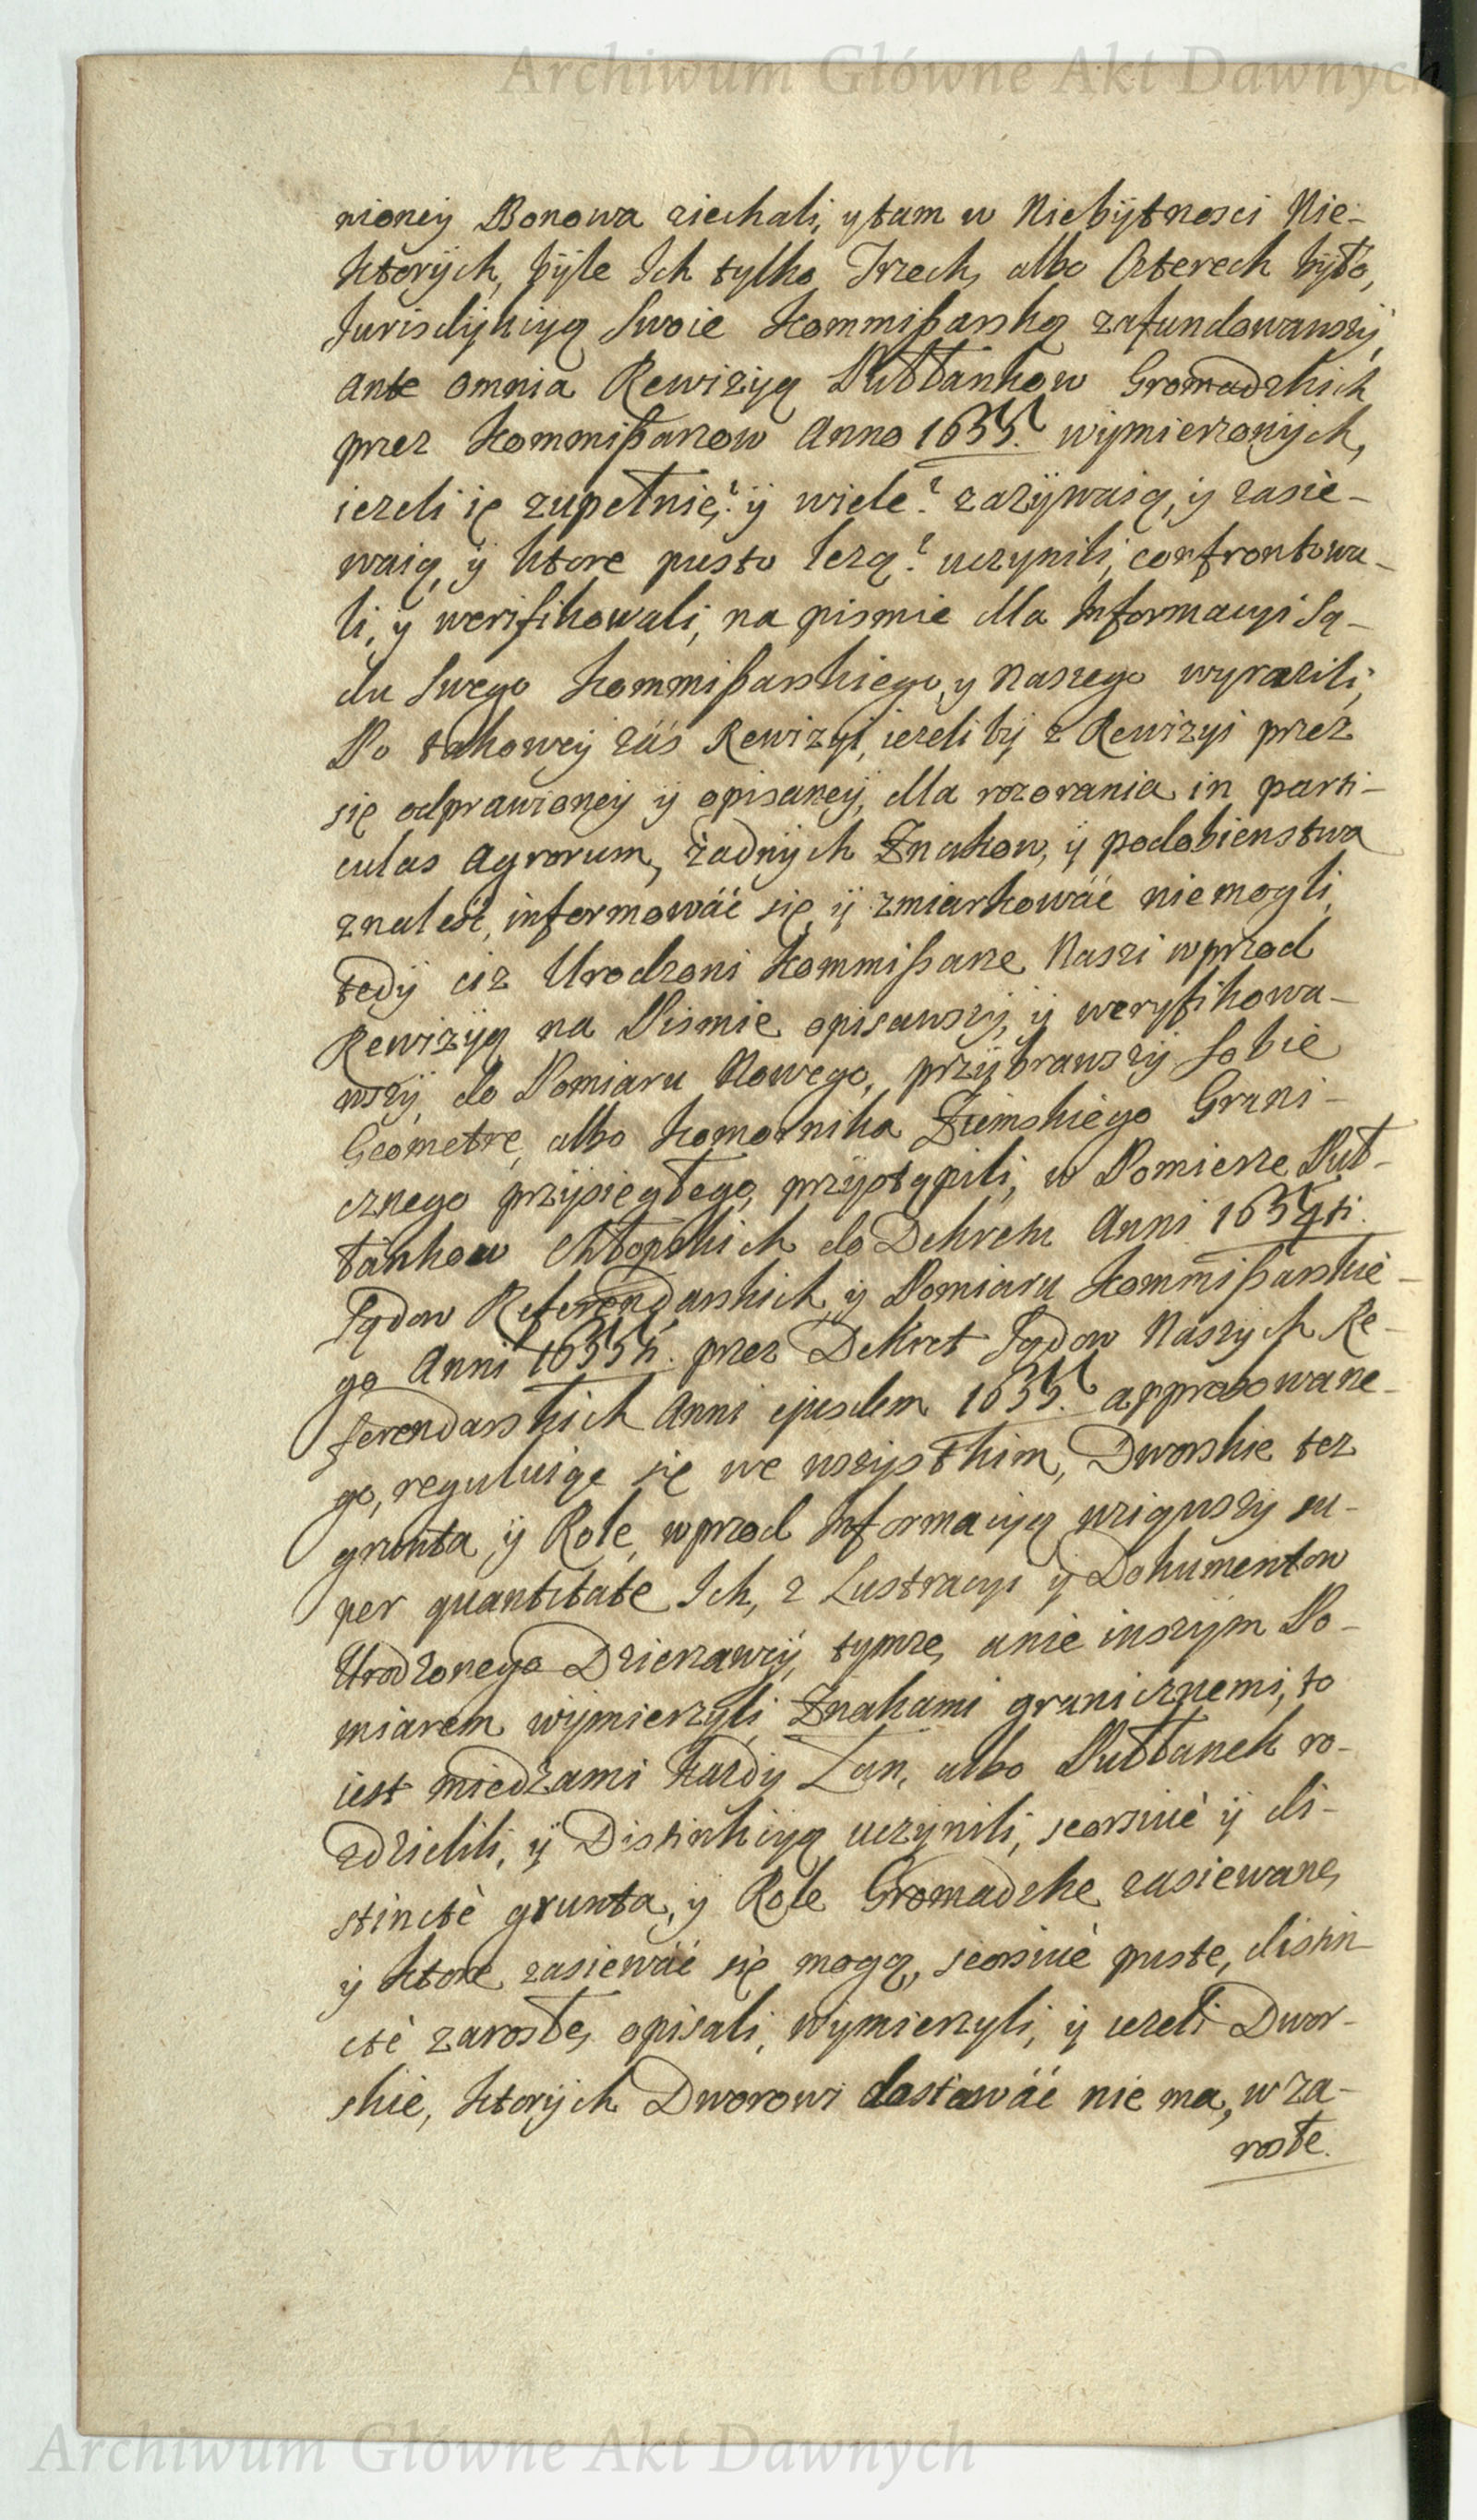 Archiwum Główne Akt Dawnych
nioney Bonowa ziechali, y tam w Niebÿtnosci Nie-
ktorÿch, bÿle Ich tylko Trzech, albo Czterech bÿło,
Jurisdÿkcyą Swoie Kommißarską zafundowawszÿ,
ante omnia Rewizyą Pułłankow Gromadzkich
przez Kommißarzow Anno 1655. wÿmierzonÿch,
iezeli ię zupełnie? ÿ wiele? zazÿwaią, ÿ zasie-
waią, ÿ ktore pusto lezą? uczynili, confrontowa-
li, y werifikowali, na pismie dla Informacyi Są-
du Swego Kommißarskiego, y Naszego wyrazili,
Po takoweÿ zaś Rewizyi, iezeli bÿ z Rewizyi przez
się odprawioneÿ ÿ opisaneÿ, dla rozorania in parti-
culas Agrorum, żadnÿch Znakow, ÿ podobienstwa
znaleść, informowáć się, ÿ zmiarkowáć nie mogli,
tedÿ ciz Urodzoni Kommißarze Naszi wprzod
Rewizÿą na Pismie opisawszÿ, ÿ weryfikowa-
wszÿ, do Pomiaru Nowego, przÿbrawszÿ sobie
Geometrę, albo Komornika Ziemskiego Grani-
cznego przÿsięgłego, przÿstąpili, w Pomierze Puł-
łankow Chłopskich do Dekretu Anni 1654ti.
Sądow Referendarskich, ÿ Pomiaru Kommißarskie-
go Anni 1655ti. przez Dekret Sądow Naszÿch Re-
ferendarskich Anni ejusdem 1655. approbowane-
go, reguluiąc się we wszÿstkim, Dworskie tez
grunta, ÿ Role, wprzod Informacyą wziąwszÿ su-
per quantitate Ich, z Lustracyi ÿ Dokumentow
Urodzonego Dzierzawcÿ, tymze, a nie inszÿm Po-
miarem wÿmierzyli, Znakami granicznemi, to
iest miedzami kazdy Łan, albo Pułłanek ro-
zdzielili, ÿ Distinkcyą uczÿnili, seorsivè ÿ di-
stinctè grunta, y Role Gromadzke zasiewane,
ÿ ktore zasiewáć się mogą, seorsivè puste, distin-
ctè zarosłe, opisali, wÿmierzyli, ÿ iezeli Dwor-
skie, ktorÿch Dworowi dostawáć nie ma, w za-
rosłe.
Archiwum Główne Akt Dawnych